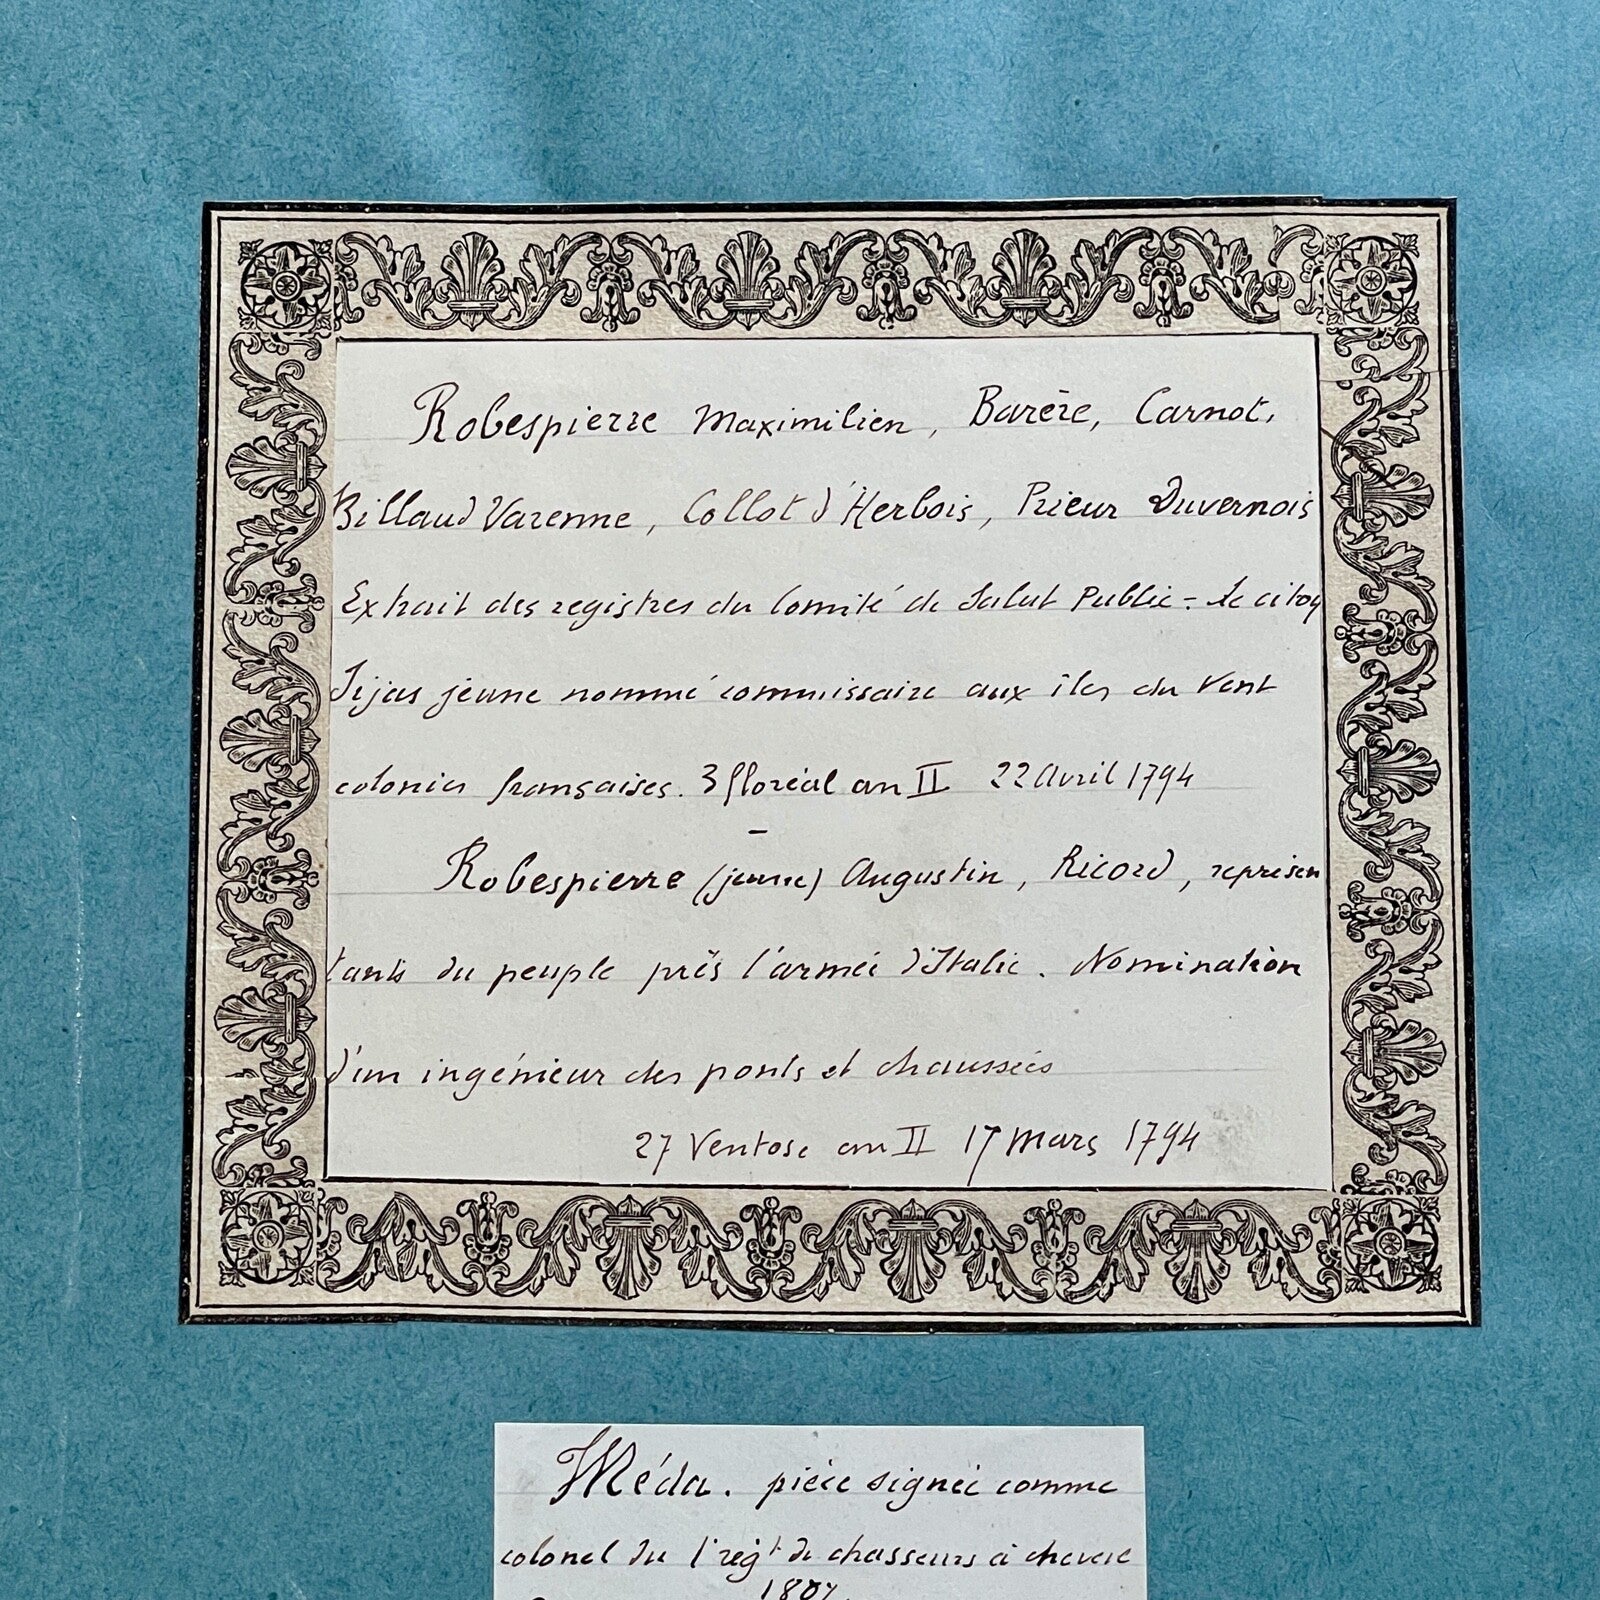 Robespierre Maximilien, Barère, Carnot,
Billaud Varenne, Collot d'Herbois, Prieur Duvernois
Extrait des registres du Comité de Salut Public = Le citoy
Sijas jeune nommé commissaire aux îles du Vent
colonies françaises. 3 floréal an II 22 Avril 1794
—
Robespierre (jeune) Augustin, Ricord, représen
tants du peuple près l'armée d'Italie. Nomination
d'un ingénieur des ponts et chaussées
27 Ventose an II 17 Mars 1794
Méda. pièce signée comme
colonel du 1er regt de chasseurs à cheval
1807.